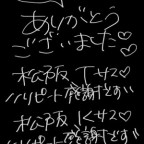 ありがとう
ございました♡
松阪 Tサマ♡
リピート感謝です
松阪 Kサマ♡
リピート感謝です